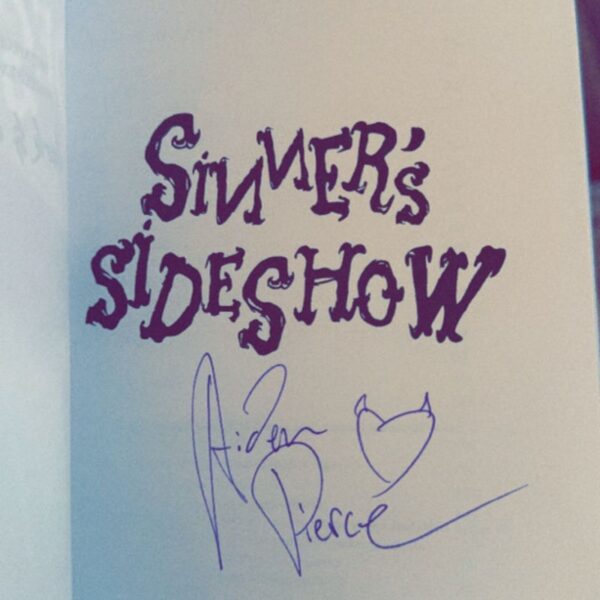 SINNER'S
SIDESHOW
Aiden
Pierce